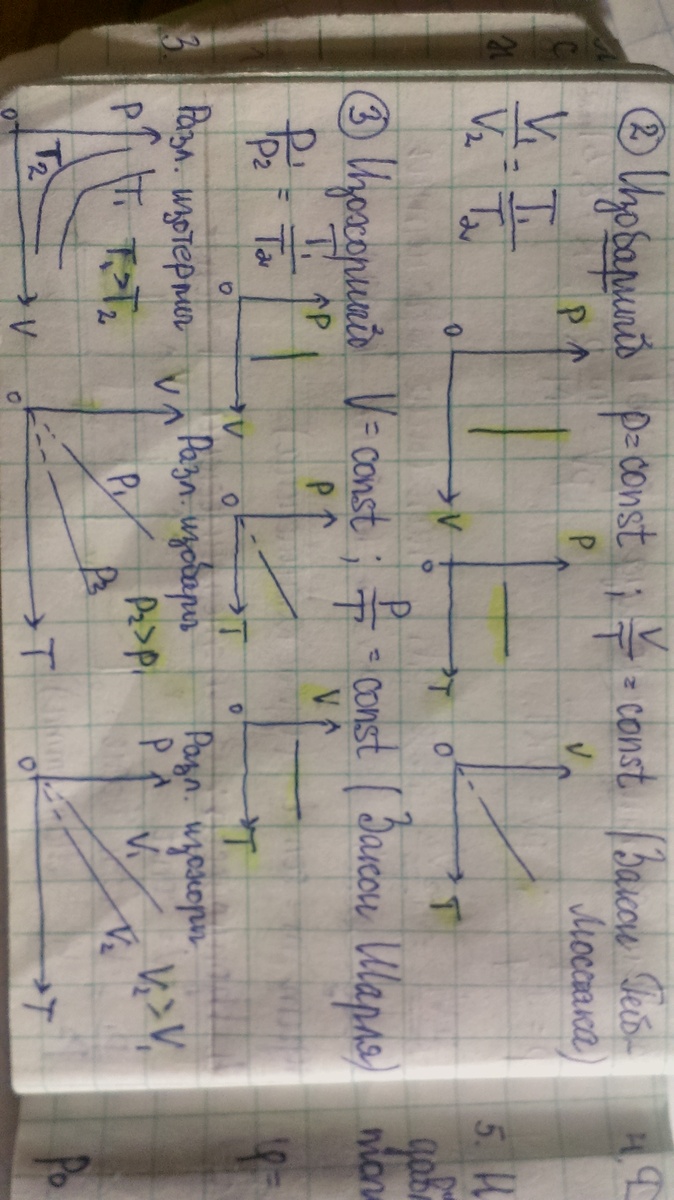 ② Изобарный p=const ; V/T = const (Закон Гей-
Люссака)
V₁/V₂ = T₁/T₂
P
0
V
P
0
T
V
0
T
③ Изохорный V=const ; P/T = const (Закон Шарля)
P₁/P₂ = T₁/T₂
P
0
V
P
0
T
V
0
T
Разл. изотермы
P
T₁
T₂
T₁>T₂
0
V
Разл. изобары
V
P₁
P₂
P₂>P₁
0
T
Разл. изохоры
P
V₁
V₂
V₂>V₁
0
T
3.
4.
5. И
φ=
P₀